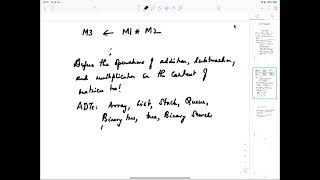 M3 ← M1 * M2
:
Define the operations of addition, subtraction,
and multiplication in the context of
matrices too!
ADTs: Array, List, Stack, Queue,
Binary tree, tree, Binary Search